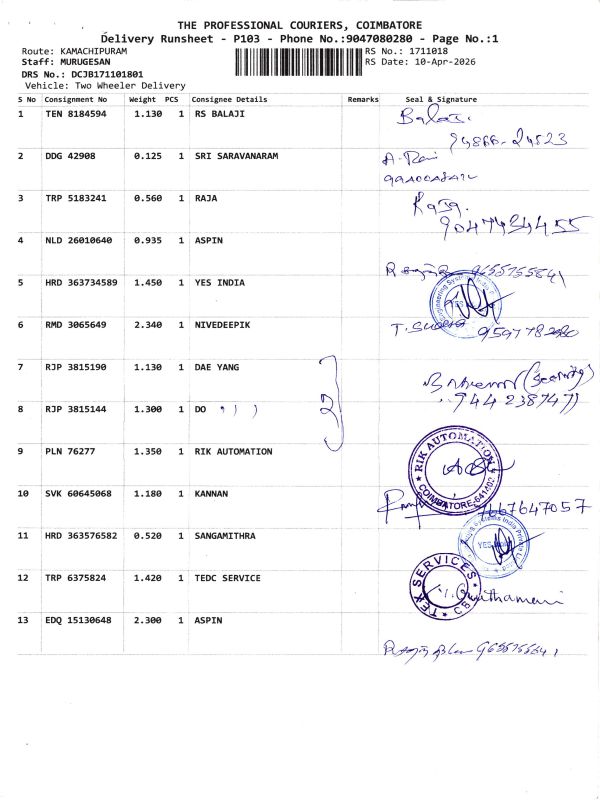 THE PROFESSIONAL COURIERS, COIMBATORE
Delivery Runsheet - P103 - Phone No.:9047080280 - Page No.:1
Route: KAMACHIPURAM
Staff: MURUGESAN
DRS No.: DCJB171101801
Vehicle: Two Wheeler Delivery
RS No.: 1711018
RS Date: 10-Apr-2026
S No Consignment No Weight PCS Consignee Details Remarks Seal & Signature
1 TEN 8184594 1.130 1 RS BALAJI Balaji.
2 DDG 42908 0.125 1 SRI SARAVANARAM
3 TRP 5183241 0.560 1 RAJA Raja.
9047434455
4 NLD 26010640 0.935 1 ASPIN
5 HRD 363734589 1.450 1 YES INDIA
6 RMD 3065649 2.340 1 NIVEDEEPIK
7 RJP 3815190 1.130 1 DAE YANG (Security)
8 RJP 3815144 1.300 1 DO 2
9 PLN 76277 1.350 1 RIK AUTOMATION RIK AUTOMATION
COIMBATORE-641402
10 SVK 60645068 1.180 1 KANNAN 7667647057
11 HRD 363576582 0.520 1 SANGAMITHRA
12 TRP 6375824 1.420 1 TEDC SERVICE
13 EDQ 15130648 2.300 1 ASPIN